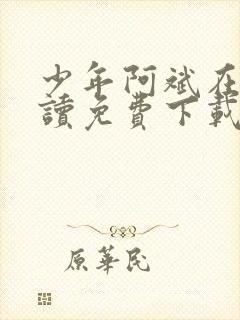 少年阿斌在
讀免費下載
原華民